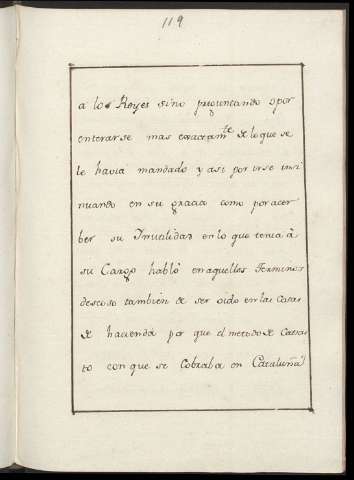 119
a los Reyes sino preguntando o por
enterarse mas exactam.te de lo que se
le havia mandado y asi por irse insi
nuando en su gracia como por acer
ber su Inutilidad en lo que tenia à
su Cargo habló en aquellos Terminos
deseoso tambien de ser oido en las Cosas
de hacienda por que el metodo de Catras
to con que se Cobraba en Cataluña